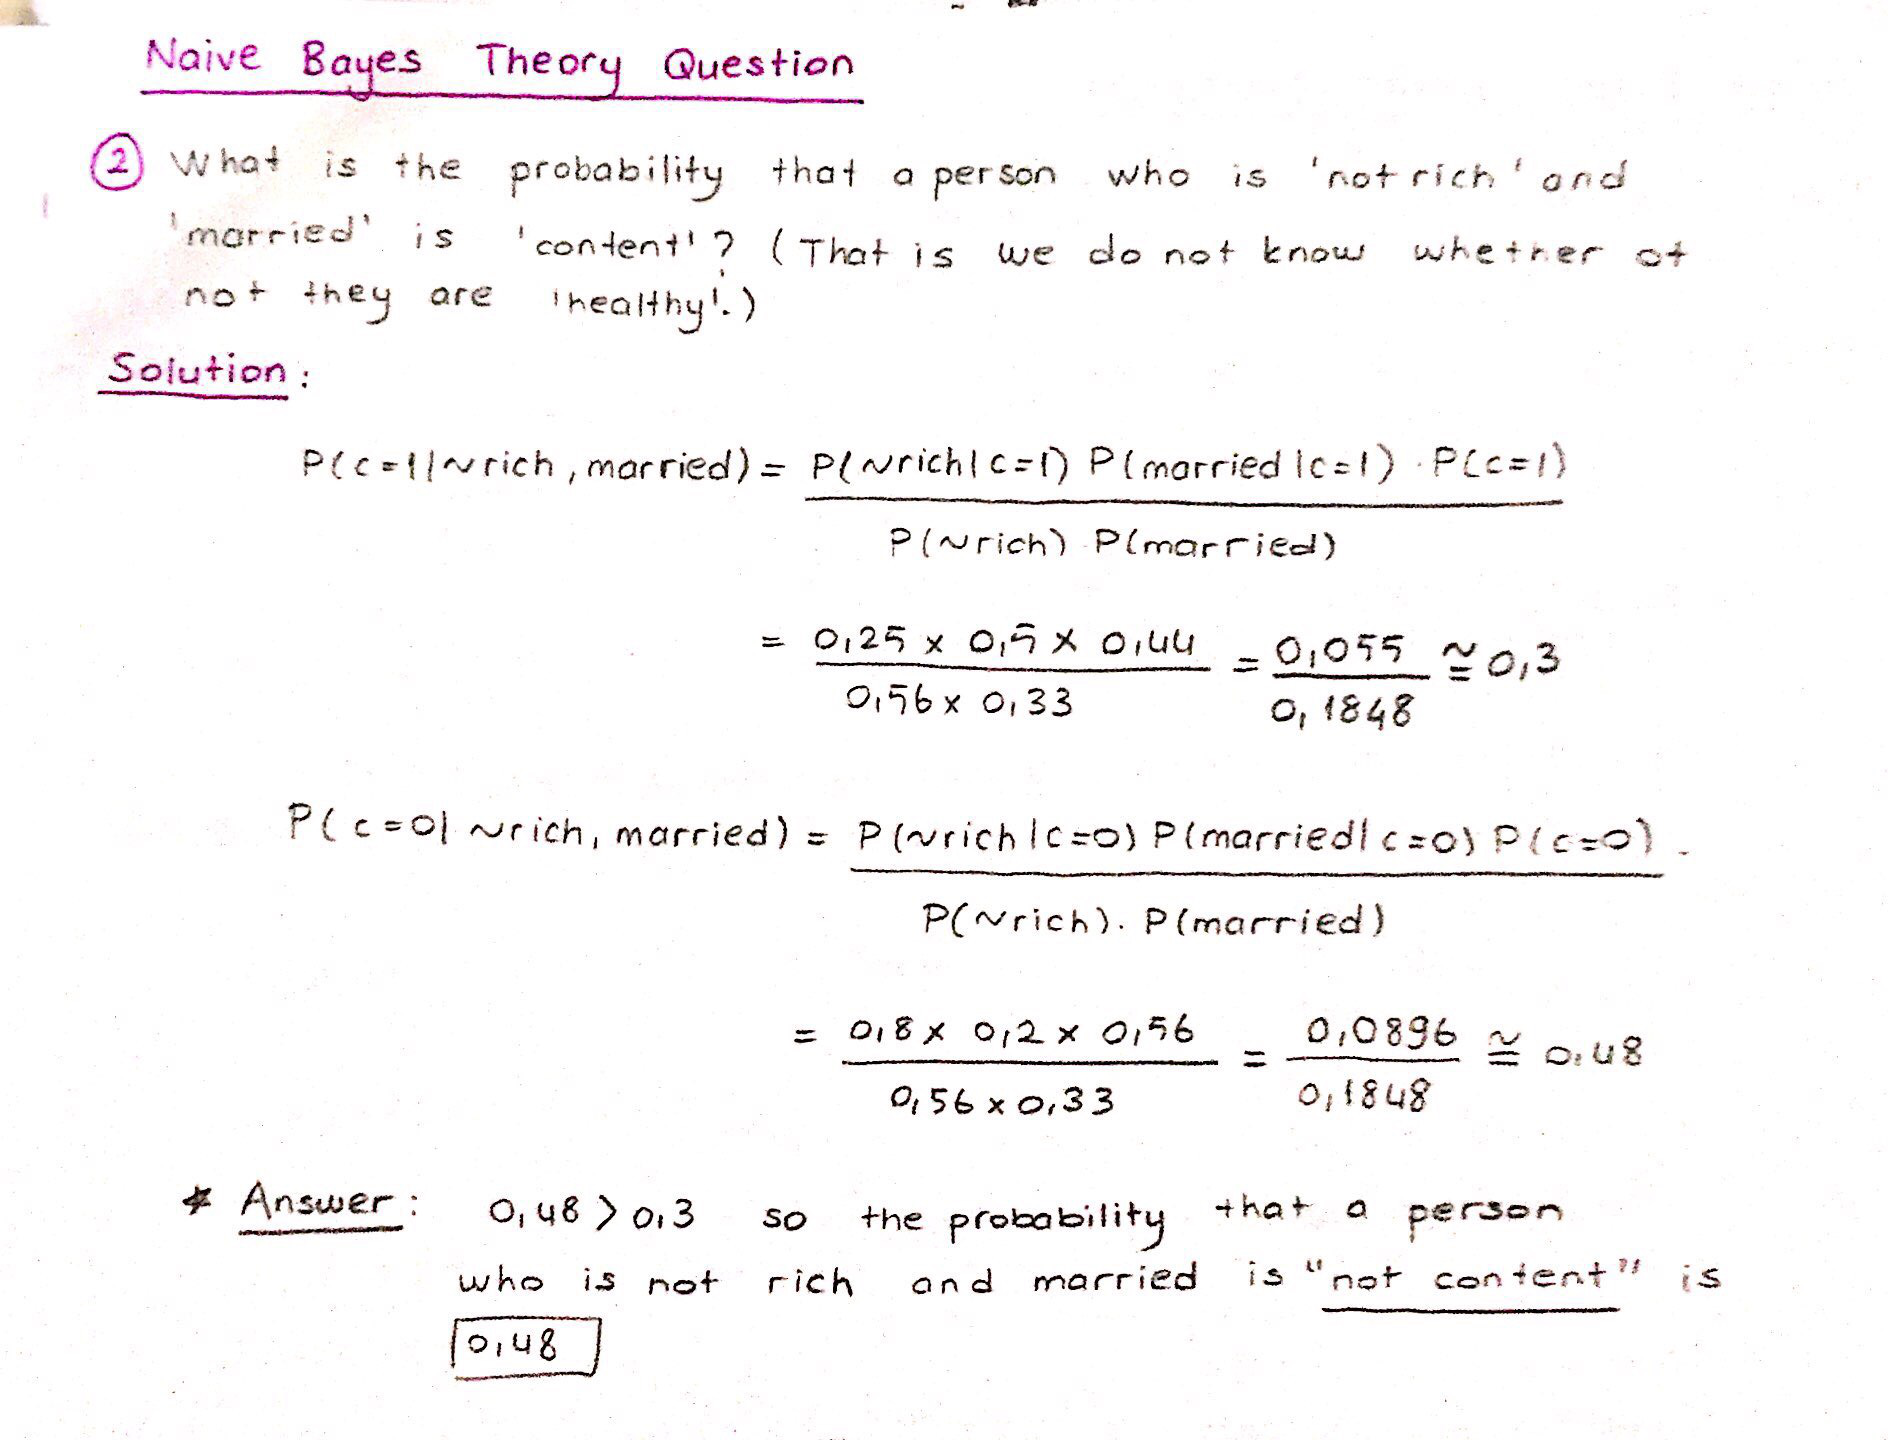 Naive Bayes Theory Question
2 What is the probability that a person who is 'not rich' and
'married' is 'content'? (That is we do not know whether ot
not they are 'healthy'.)
Solution:
P(c=1|~rich, married) = P(~rich|c=1) P(married|c=1) · P(c=1)
P(~rich) P(married)
= 0,25 x 0,5 x 0,44 = 0,055 ≅ 0,3
0,56 x 0,33 0,1848
P(c=0|~rich, married) = P(~rich|c=0) P(married|c=0) P(c=0).
P(~rich). P(married)
= 0,8 x 0,2 x 0,56 = 0,0896 ≅ 0,48
0,56 x 0,33 0,1848
* Answer: 0,48 > 0,3 so the probability that a person
who is not rich and married is "not content" is
0,48